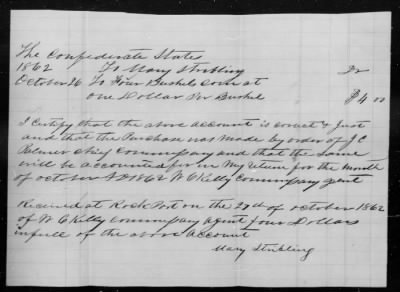 The Confederate States
1862 To Mary Stribling Dr
October 26 To Four Bushels corn at
one Dollar Per Bushel $4 00
I certify that the above account is correct & Just
and that the Purchase was made by order of J C
Palmer Chief Commissary and that the same
will be accounted for in My return for the Month
of october 1862 W C Kelly Commissary agent
Received at Rock Port on the 29th of october 1862
of W C Kelly Commissary agent four Dollars
in full of the above account
Mary Stribling